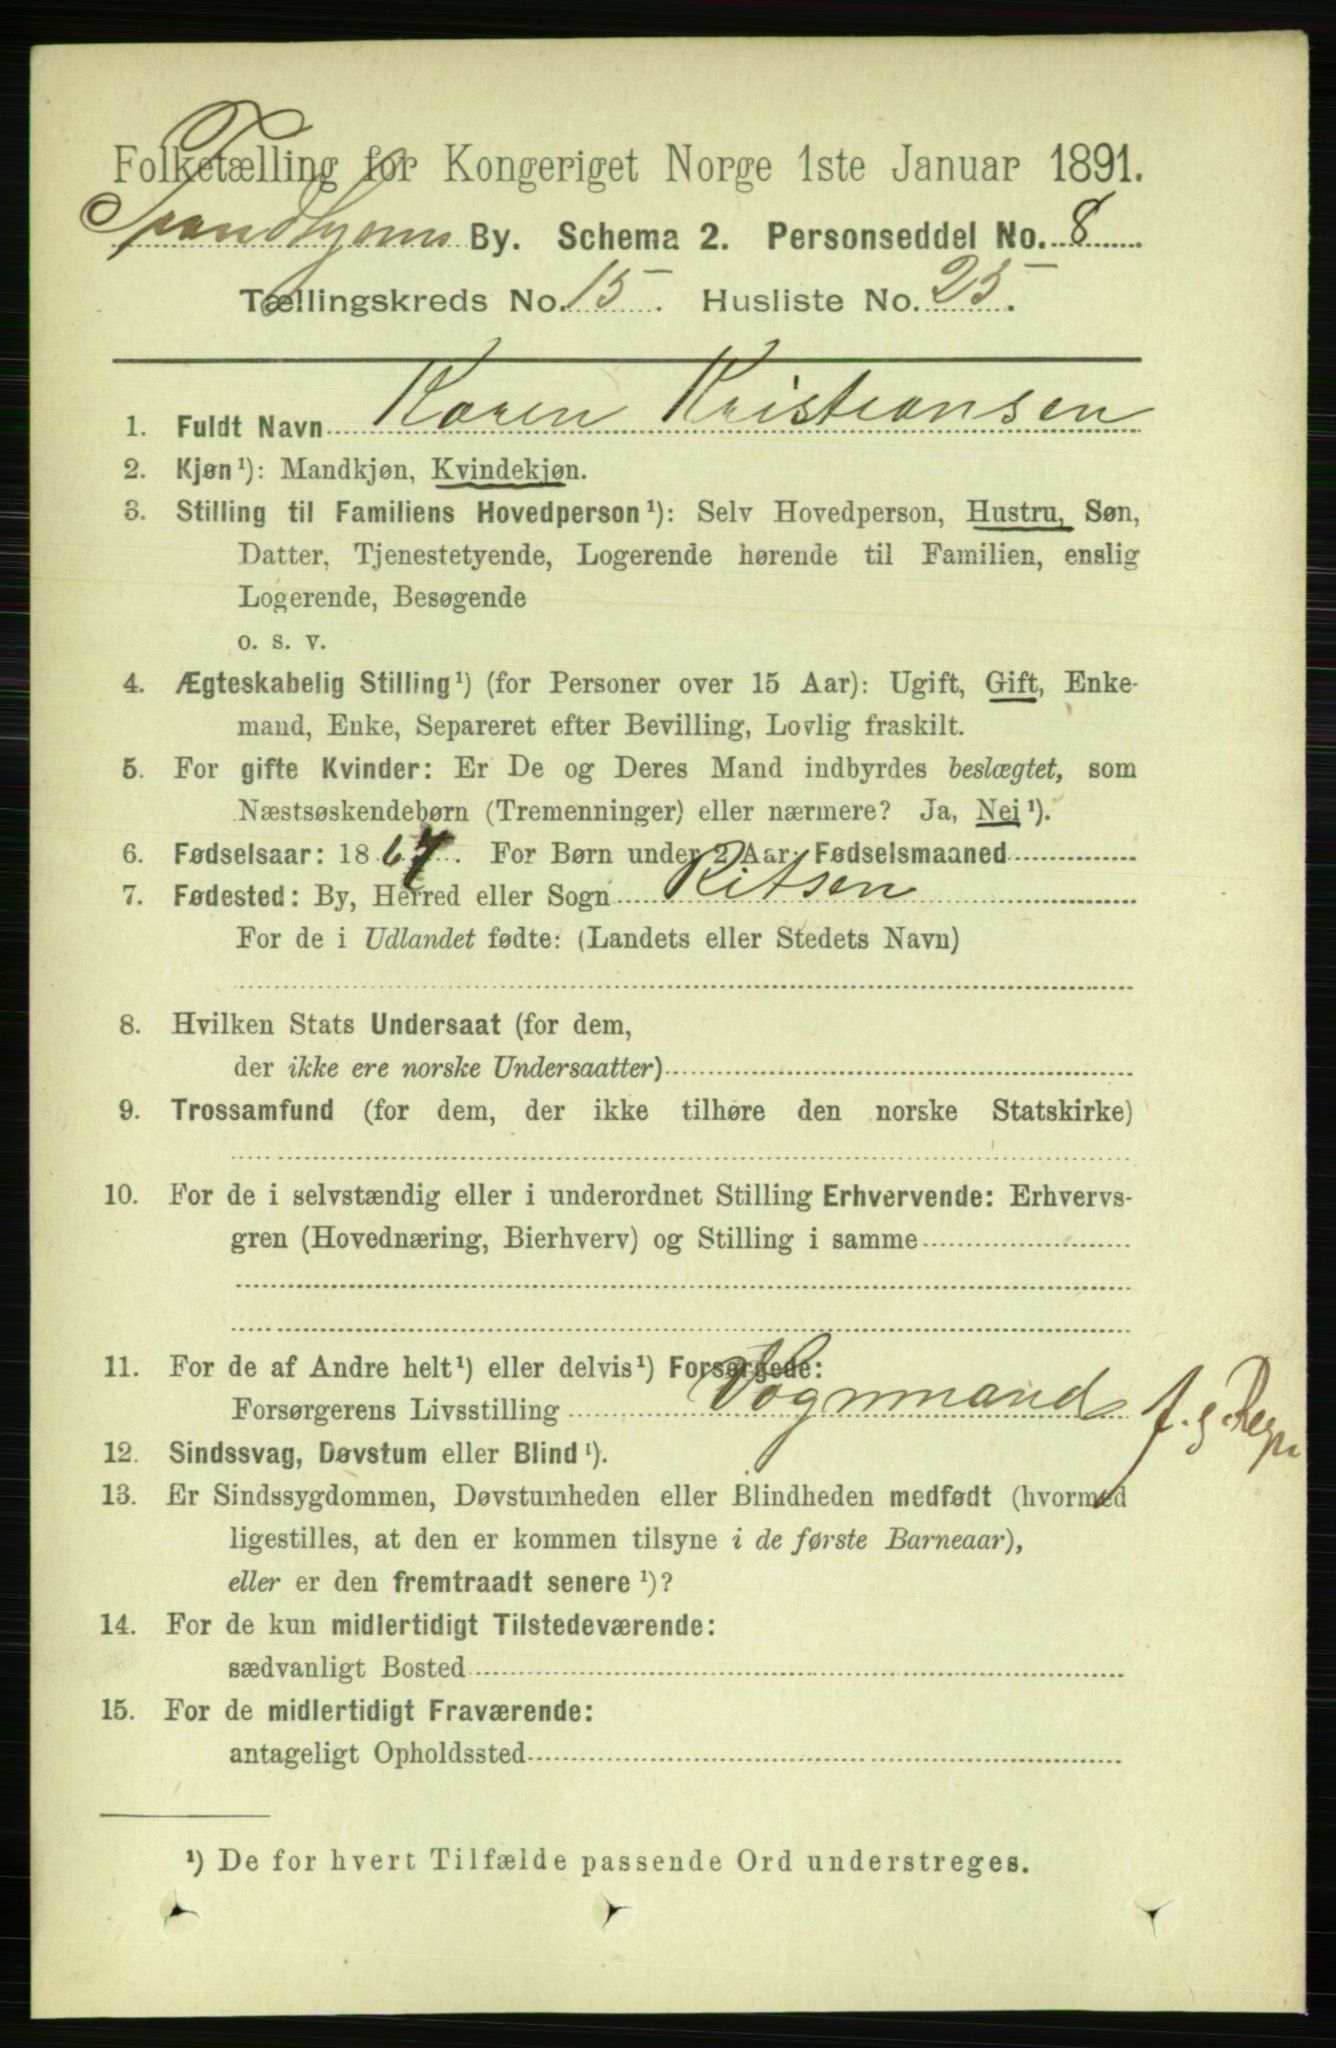 Folketælling for Kongeriget Norge 1ste Januar 1891.
Trondhjems By. Schema 2. Personseddel No. 8
Tællingskreds No. 15. Husliste No. 25.
1. Fuldt Navn Karen Kristiansen
2. Kjøn¹): Mandkjøn, Kvindekjøn.
3. Stilling til Familiens Hovedperson¹): Selv Hovedperson, Hustru, Søn,
Datter, Tjenestetyende, Logerende hørende til Familien, enslig
Logerende, Besøgende
o. s. v.
4. Ægteskabelig Stilling¹) (for Personer over 15 Aar): Ugift, Gift, Enke-
mand, Enke, Separeret efter Bevilling, Lovlig fraskilt.
5. For gifte Kvinder: Er De og Deres Mand indbyrdes beslægtet, som
Næstsøskendebørn (Tremenninger) eller nærmere? Ja, Nei¹).
6. Fødselsaar: 1867. For Børn under 2 Aar: Fødselsmaaned
7. Fødested: By, Herred eller Sogn Ritsen
For de i Udlandet fødte: (Landets eller Stedets Navn)
8. Hvilken Stats Undersaat (for dem,
der ikke ere norske Undersaatter)
9. Trossamfund (for dem, der ikke tilhøre den norske Statskirke)
10. For de i selvstændig eller i underordnet Stilling Erhvervende: Erhvervs-
gren (Hovednæring, Bierhverv) og Stilling i samme
11. For de af Andre helt¹) eller delvis¹) Forsørgede:
Forsørgerens Livsstilling Vognmand f. g. Regn
12. Sindssvag, Døvstum eller Blind¹).
13. Er Sindssygdommen, Døvstumheden eller Blindheden medfødt (hvormed
ligestilles, at den er kommen tilsyne i de første Barneaar),
eller er den fremtraadt senere¹)?
14. For de kun midlertidigt Tilstedeværende:
sædvanligt Bosted
15. For de midlertidigt Fraværende:
antageligt Opholdssted
¹) De for hvert Tilfælde passende Ord understreges.